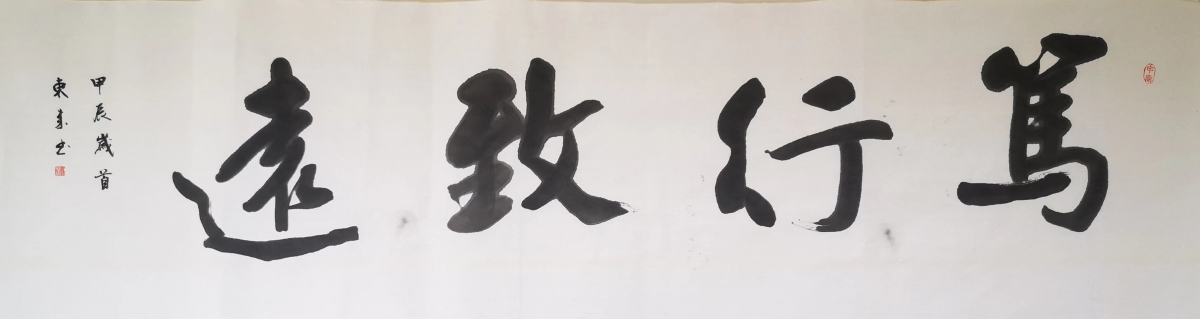 篤行致遠
甲辰歲首
東来书